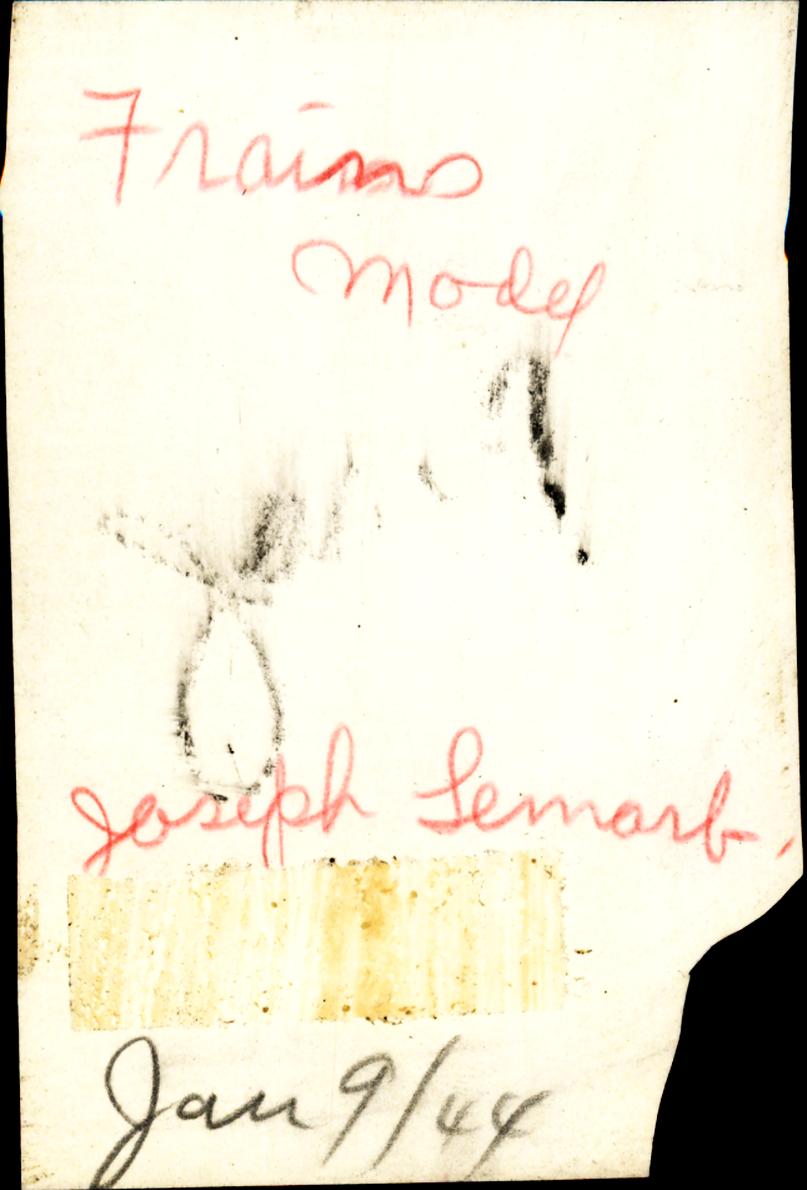 Trains
Model
Joseph Lemark
Jan 9/44